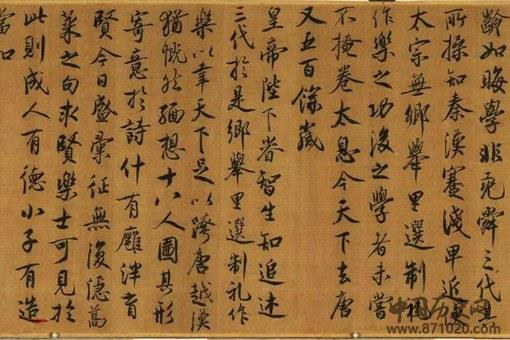 齡如晦學非堯舜三代
所操知秦漢蹇淺卑近
太宗無鄉舉里選制禮
作樂之功後之學者未嘗
不掩卷太息今天下去唐
又五百餘歲
皇帝陛下睿智生知追述
三代於是鄉舉里選制礼作
樂以幸天下足以跨唐越漢
猶慨然緬想十八人圖其形
寄意於詩什有廱泮育
賢今日盛彙征無復隱蒿
萊之句求賢樂士可見於
此則成人有德小子有造
當
中国历史网
www.871020.com